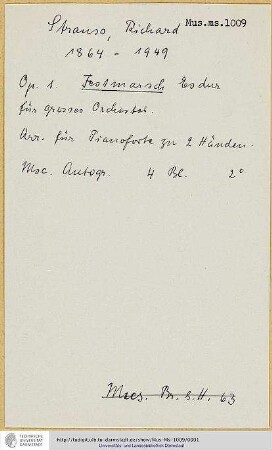 Strauss, Richard Mus.ms.1009
1864 - 1949
Op. 1. Festmarsch Es dur
für grosses Orchester.
Arr. für Pianoforte zu 2 Händen.
Msc. Autogr. 4 Bl. 2°
63
TECHNISCHE
UNIVERSITÄT
DARMSTADT
http://tudigit.ulb.tu-darmstadt.de/show/Mus-Ms-1009/0001
Universitäts- und Landesbibliothek Darmstadt